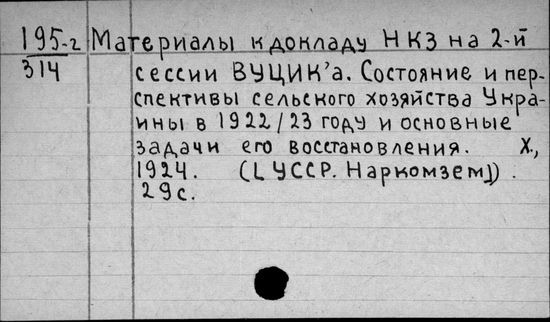 195-г Материалы к докладу НКЗ на 2-й
314
сессии ВУЦИК'а. Состояние и пер-
спективы сельского хозяйства Укра-
ины в 1922/23 году и основные
задачи его восстановления. Х.,
1924. ([УССР. Наркомзем]).
29с.